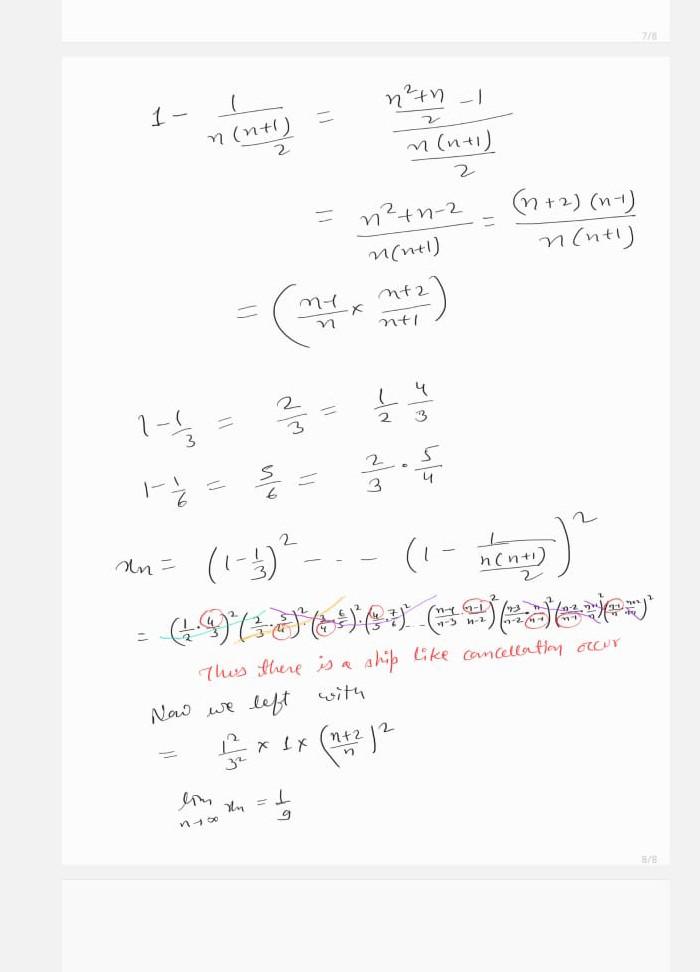 7/8
1 - 1/(n(n+1)/2) = ((n²+n)/2 - 1)/(n(n+1)/2)
= (n²+n-2)/(n(n+1)) = ((n+2)(n-1))/(n(n+1))
= ((n-1)/n × (n+2)/(n+1))
1-1/3 = 2/3 = 1/2 4/3
1-1/6 = 5/6 = 2/3 · 5/4
xn = (1-1/3)² --- (1 - 1/(n(n+1)/2))²
= (1/2 · 4/3)² (2/3 · 5/4)² · (3/4 · 6/5)² · (4/5 · 7/6)² -- (n-4/n-3 n-1/n-2)² (n-3/n-2 · n/n-1)² (n-2/n-1 · n+1/n)² (n-1/n n+2/n+1)²
Thus there is a ship like cancellation occur
Now we left with
= 1²/3² × 1 × ((n+2)/n)²
lim n→∞ xn = 1/9
8/8